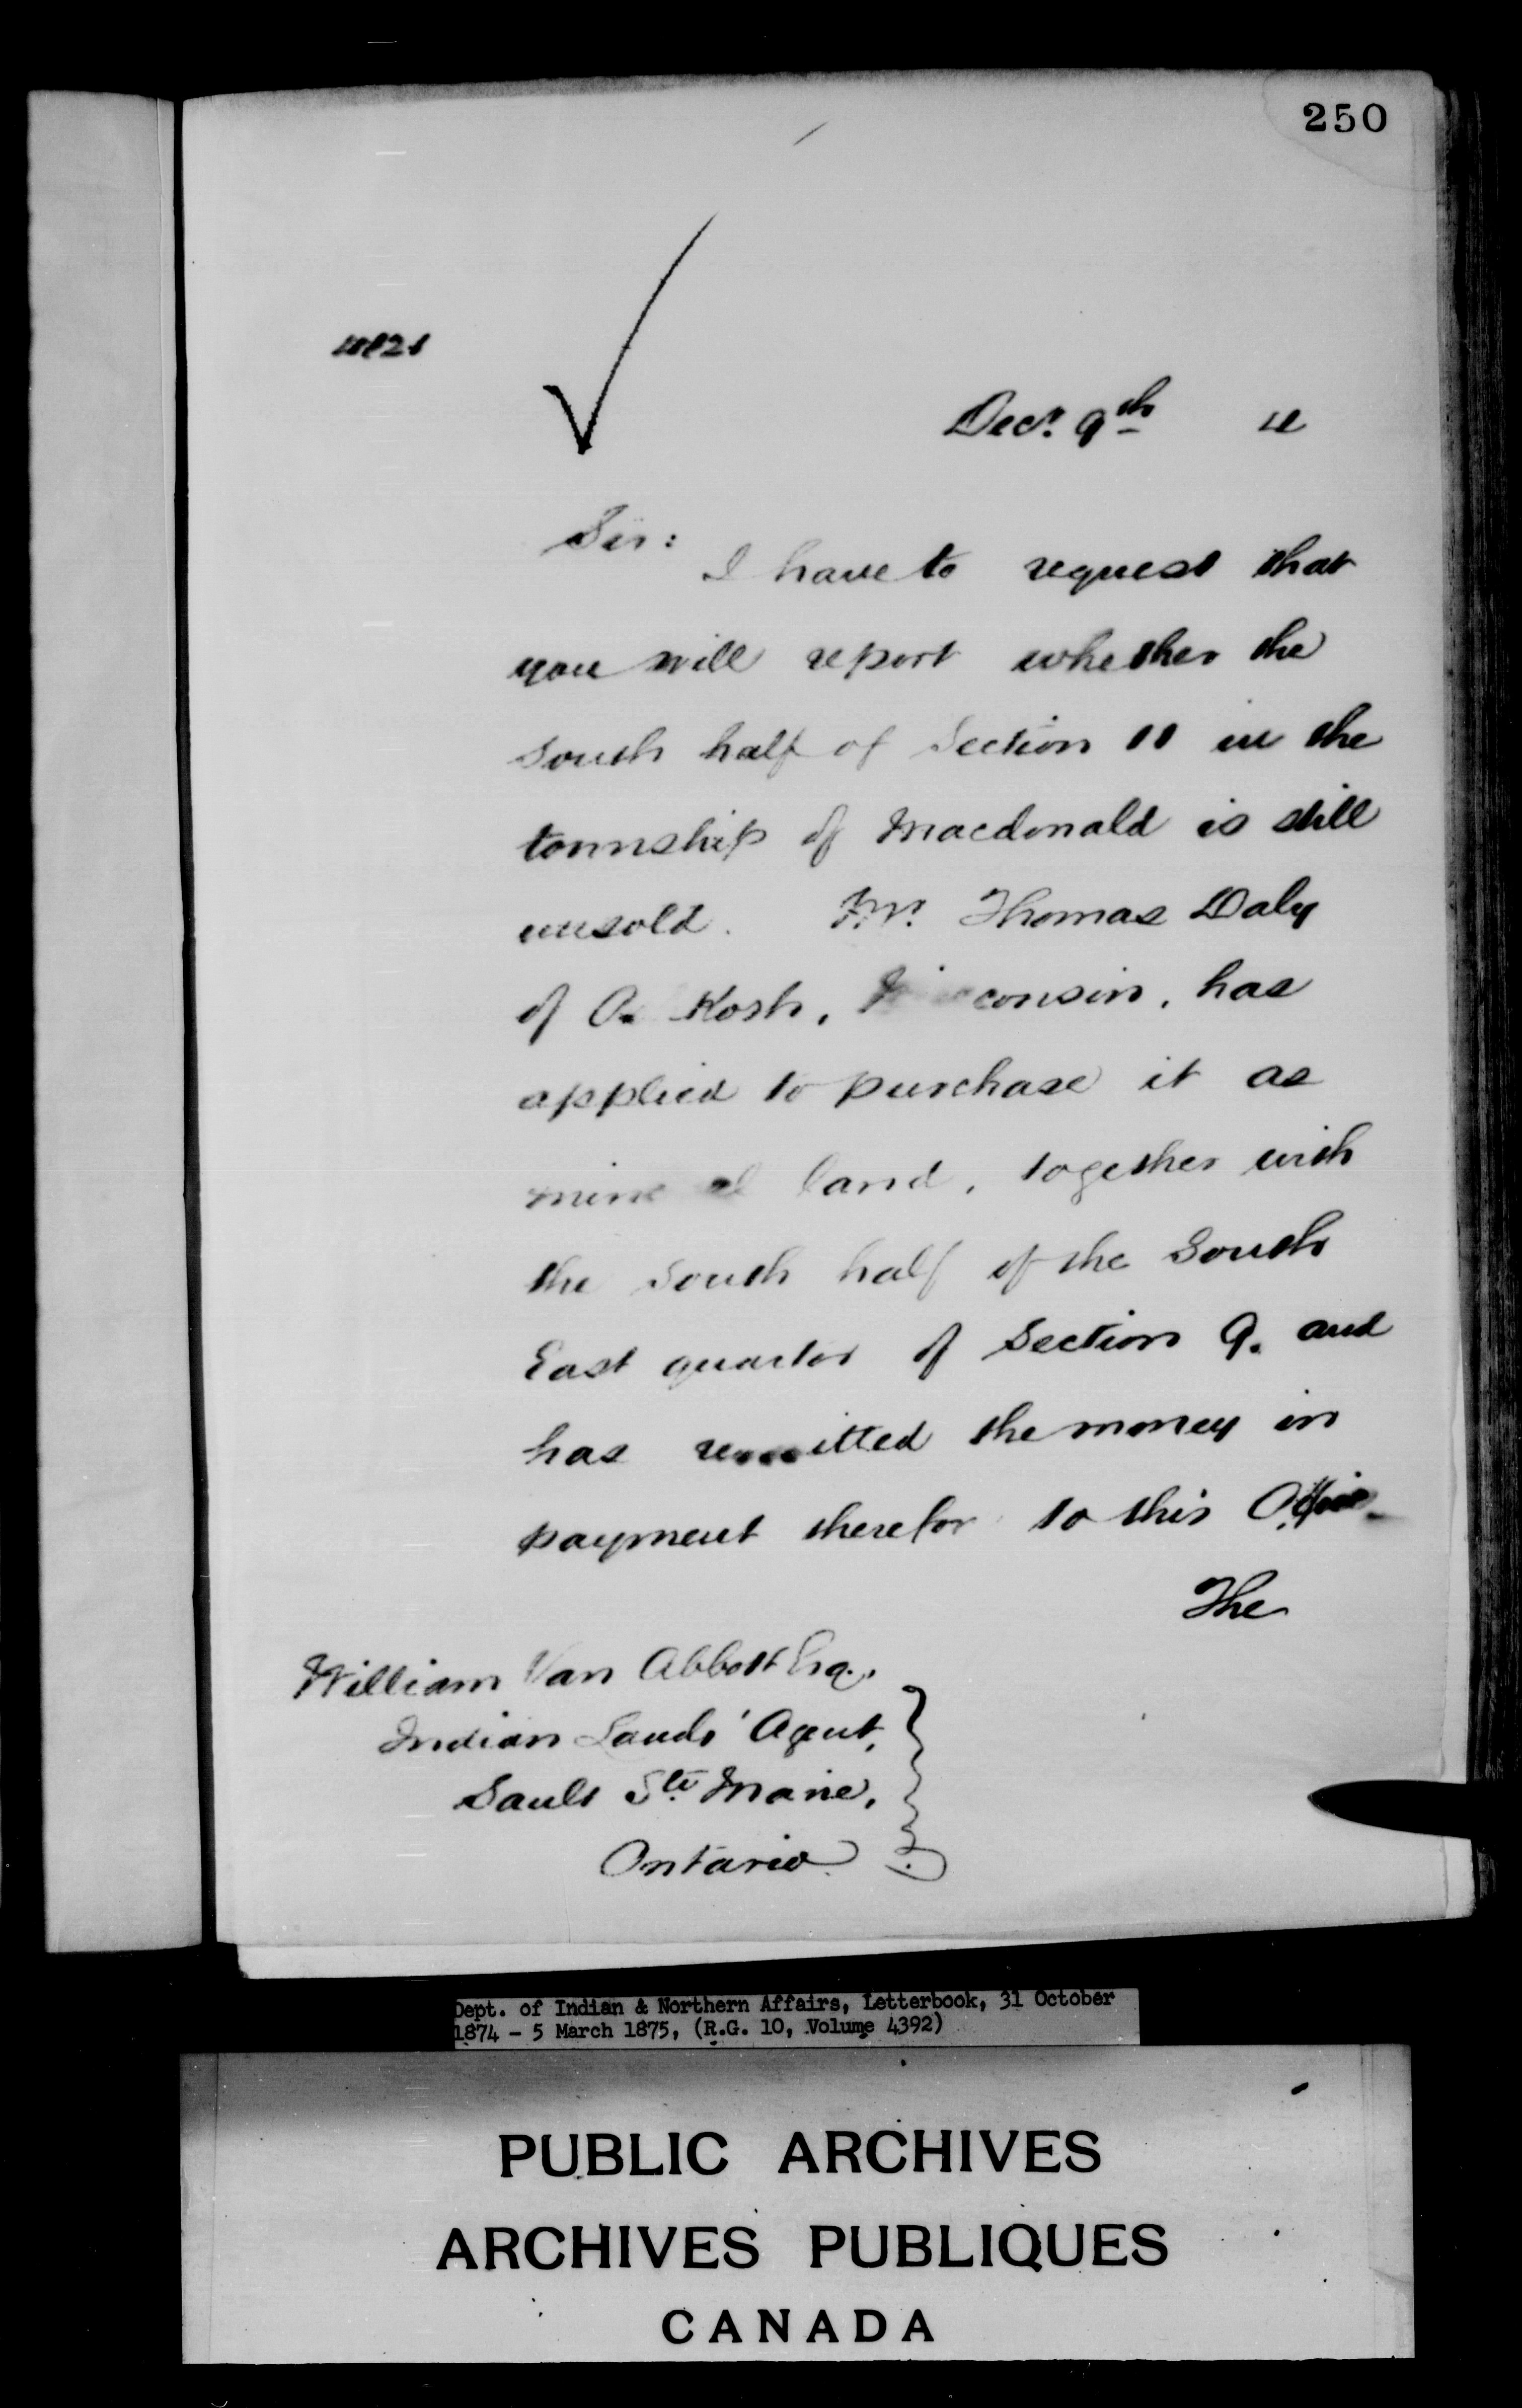 250
Decr. 9th
Sir:
I have to request that
you will report whether the
South half of Section 11 in the
township of Macdonald is still
unsold. Mr. Thomas Daly
of Kosh, consin, has
applied to purchase it as
land, together with
the South half of the South
East quarter of Section 9. and
has remitted the money in
payment therefor to this Office
The
William Van Abbott Esq.,
Indian Lands' Agent,
Sault Ste Marie,
Ontario.
Dept. of Indian & Northern Affairs, Letterbook, 31 October
1874 - 5 March 1875, (R.G. 10, Volume 4392)
PUBLIC ARCHIVES
ARCHIVES PUBLIQUES
CANADA